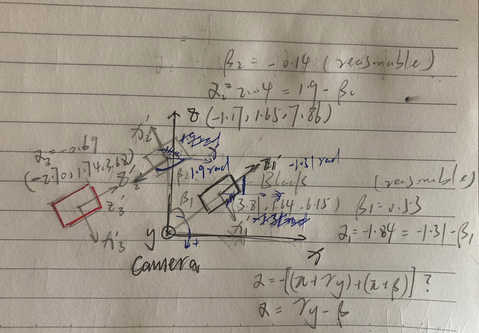 β₂ = -0.14 (reasonable)
α₂ = 2.04 = 1.9 - β₂
z (-1.17, 1.65, 7.86)
α₃ = -0.69
(-2.70, 1.74, 3.68)
x₂'
z₂'
β₂ 1.9 rad
z₁' -1.31 rad
Black (reasonable)
z₃'
β₁
(3.81, 1.64, 6.15) β₁ = 0.53
x₃'
y
x₁'
α₁ = -1.84 = -1.31 - β₁
x
Camera
α = -[(π + ry) + (π + β)] ?
α = ry - β